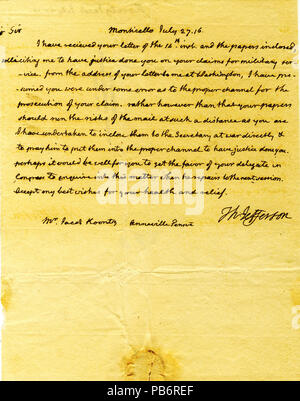 Sir
Monticello July 27. 16.
I have recieved your letter of the 16th inst. and the papers inclosed,
solliciting me to have justice done you on your claims for military ser-
vice. from the address of your letter to me at Washington, I have pre-
-sumed you were under some error as to the proper channel for the
prosecution of your claim. rather however than that your papers
should run the risks of the mail at such a distance as you are
I have undertaken to inclose them to the Secretary at war directly &
to pray him to put them into the proper channel to have justice done you.
perhaps it would be well for you to get the favor of your delegate in
Congress to enquire into the matter when he repairs to the next session.
Accept my best wishes for your health and relief.
Th: Jefferson
Mr. Jacob Koontz Annville Pennsa
alamy
Image ID: PB6REF
www.alamy.com